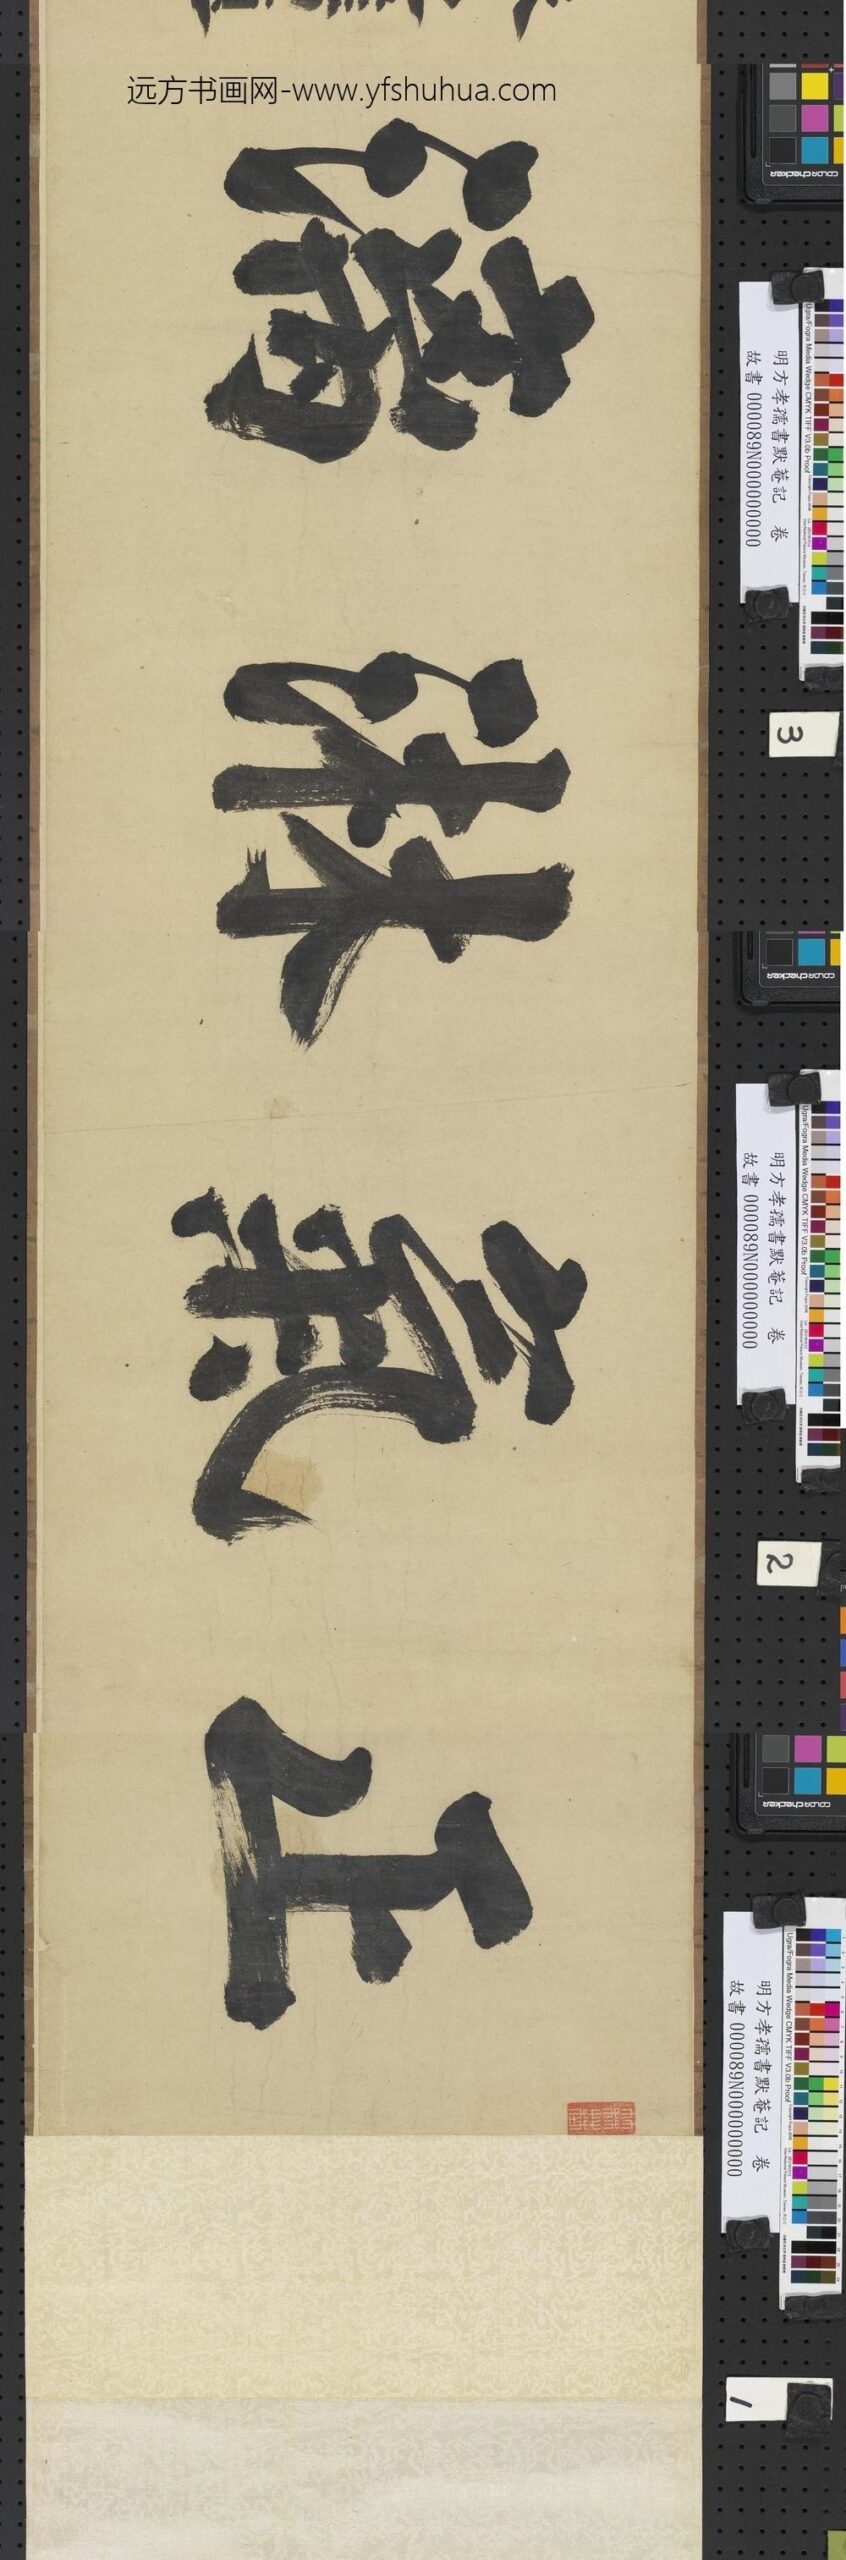 远方书画网-www.yfshuhua.com
正氣淋漓
colorchecker
明方孝孺書默菴記 卷
故書 000089N000000000
Ugra/Fogra Media Wedge CMYK TIFF V3.0b Proof
3
colorchecker
明方孝孺書默菴記 卷
故書 000089N000000000
Ugra/Fogra Media Wedge CMYK TIFF V3.0b Proof
2
colorchecker
明方孝孺書默菴記 卷
故書 000089N000000000
Ugra/Fogra Media Wedge CMYK TIFF V3.0b Proof
1